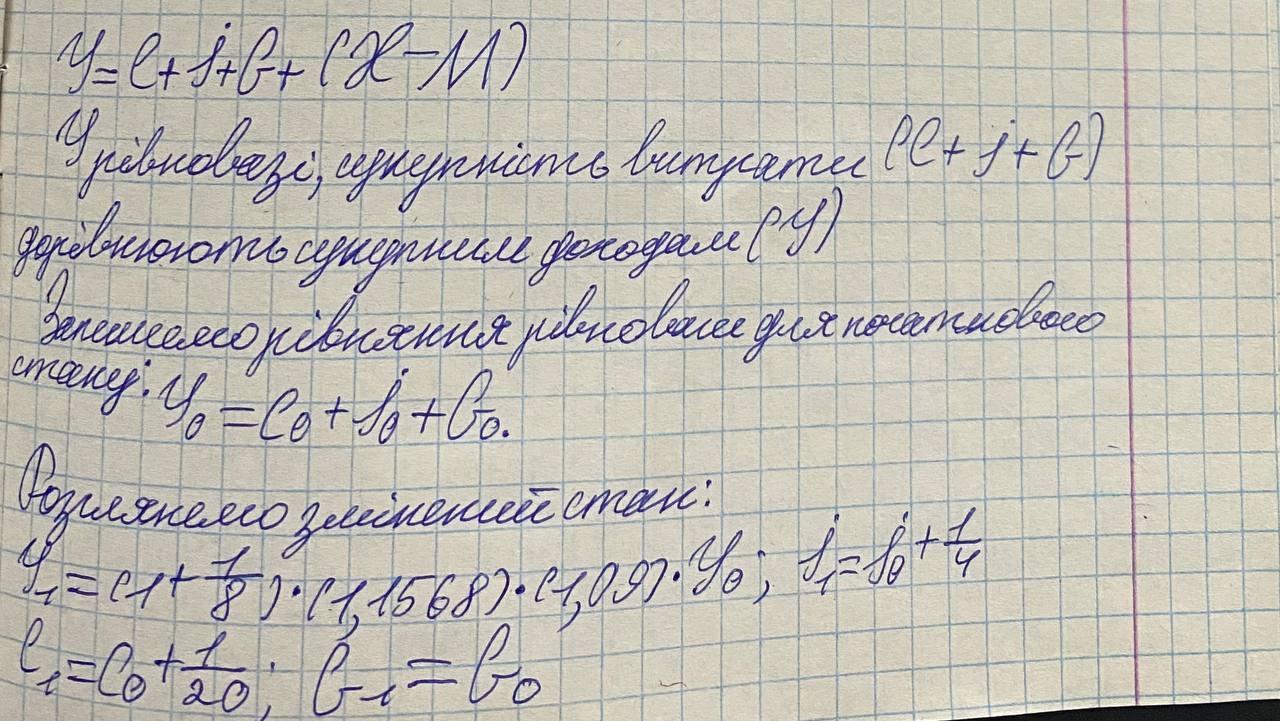 Y = C + I + G + (X - M)
У рівновазі, сукупність витрати (C + I + G)
дорівнюють сукупним доходам (Y)
Запишемо рівняння рівноваги для початкового
стану: Y₀ = C₀ + I₀ + G₀.
Розглянемо змінений стан:
Y₁ = (1 + 1/8) · (1,1568) · (1,09) · Y₀; I₁ = I₀ + 1/4
C₁ = C₀ + 1/20; G₁ = G₀